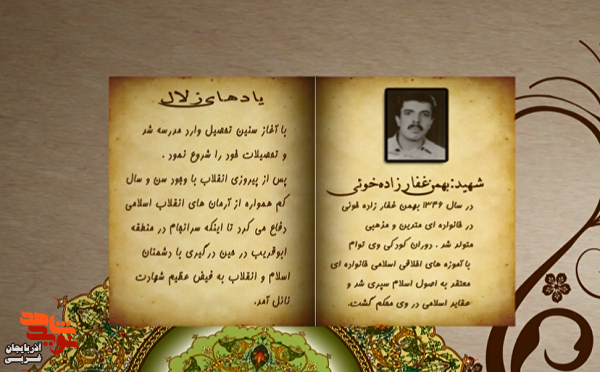 شهید: بهمن غفار زاده خوئی
در سال ۱۳۴۶ بهمن غفار زاده خوئی
در خانواده ای متدین و مذهبی
متولد شد . دوران کودکی وی توام
با آموزه های اخلاقی اسلامی خانواده ای
معتقد به اصول اسلام سپری شد و
عقاید اسلامی در وی محکم گشت.
یادهای زلال
با آغاز سنین تحصیل وارد مدرسه شد
و تحصیلات خود را شروع نمود .
پس از پیروزی انقلاب با وجود سن و سال
کم همواره از آرمان های انقلاب اسلامی
دفاع می کرد تا اینکه سرانجام در منطقه
ابوقریب در حین درگیری با دشمنان
اسلام و انقلاب به فیض عظیم شهادت
نائل آمد.
آذربایجان
غربی